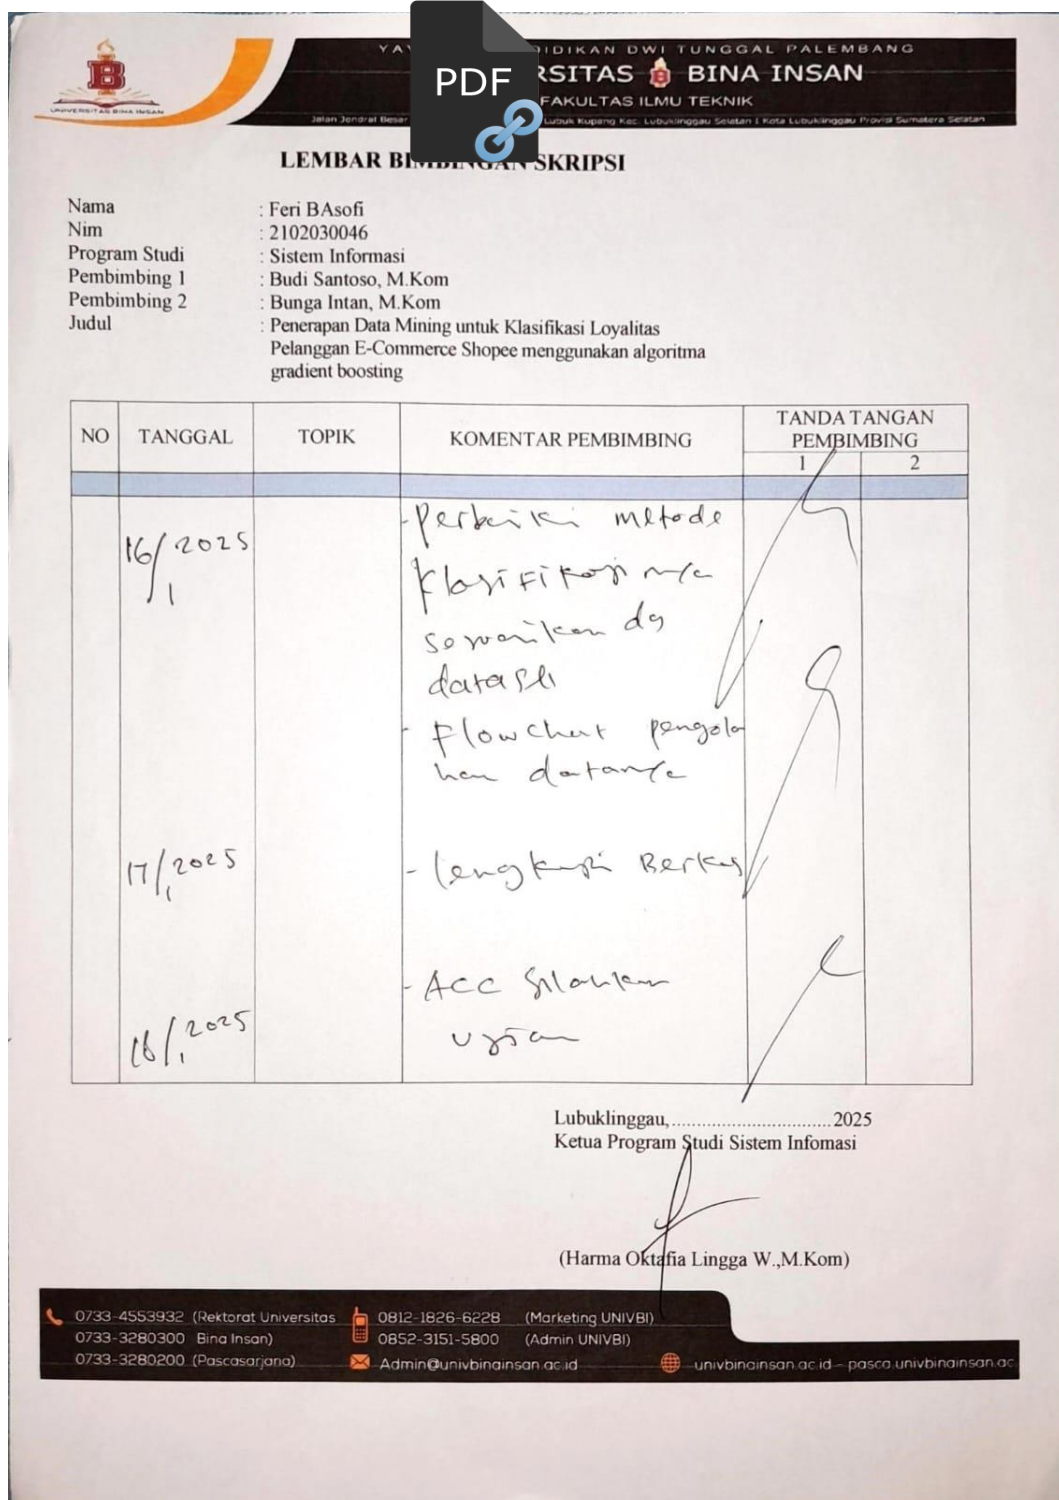 PDF
YA DIDIKAN DWI TUNGGAL PALEMBANG
RSITAS BINA INSAN
FAKULTAS ILMU TEKNIK
Jalan Jendral Besar Lubuk Kupang Kec. Lubuklinggau Selatan I Kota Lubuklinggau Provisi Sumatera Selatan
B
UNIVERSITAS BINA INSAN
LEMBAR BIMBINGAN SKRIPSI
Nama : Feri BAsofi
Nim : 2102030046
Program Studi : Sistem Informasi
Pembimbing 1 : Budi Santoso, M.Kom
Pembimbing 2 : Bunga Intan, M.Kom
Judul : Penerapan Data Mining untuk Klasifikasi Loyalitas
Pelanggan E-Commerce Shopee menggunakan algoritma
gradient boosting
NO TANGGAL TOPIK KOMENTAR PEMBIMBING TANDA TANGAN
PEMBIMBING
1 2
16/1 2025 - Perbaiki metode
klasifikasi nya
sesuaikan dg
- Flowchart pengola
han datanya
17/1 2025 - lengkapi Berkas
- ACC Silahkan
/1 2025 ujian
Lubuklinggau,................................2025
Ketua Program Studi Sistem Infomasi
(Harma Oktafia Lingga W.,M.Kom)
0733-4553932 (Rektorat Universitas 0812-1826-6228 (Marketing UNIVBI)
0733-3280300 Bina Insan) 0852-3151-5800 (Admin UNIVBI)
0733-3280200 (Pascasarjana) Admin@univbinainsan.ac.id univbinainsan.ac.id - pasca.univbinainsan.ac